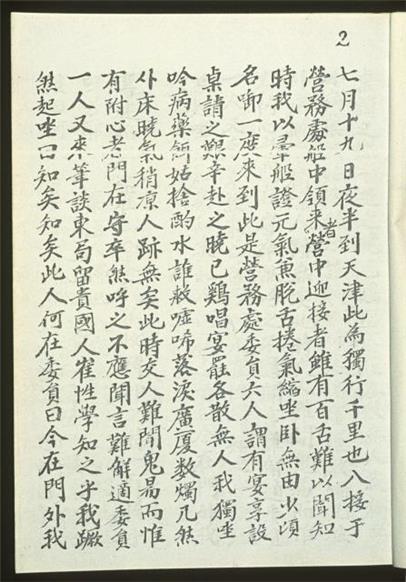 2
七月十九日夜半到天津此為獨行千里也入接于
營務處船中領来者營中迎接者雖有百舌難以聞知
時我以暈船證元氣兼脫舌捲氣縮坐卧無由少頃
名啣一度来到此是營務處委員六人謂有宴享設
桌請之艱辛赴之曉已鷄唱宴罷各散無人我獨坐
吟病藥餌姑捨酌水誰救噓唏落淚廣厦数燭兀然
仆床曉氣稍凉人跡無矣此時交人難聞鬼易而惟
有附心老門在守卒然呼之不應聞言難解適委員
一人又来筆談東局留貴國人崔性學知之乎我蹶
然起坐曰知矣知矣此人何在委員曰今在門外我